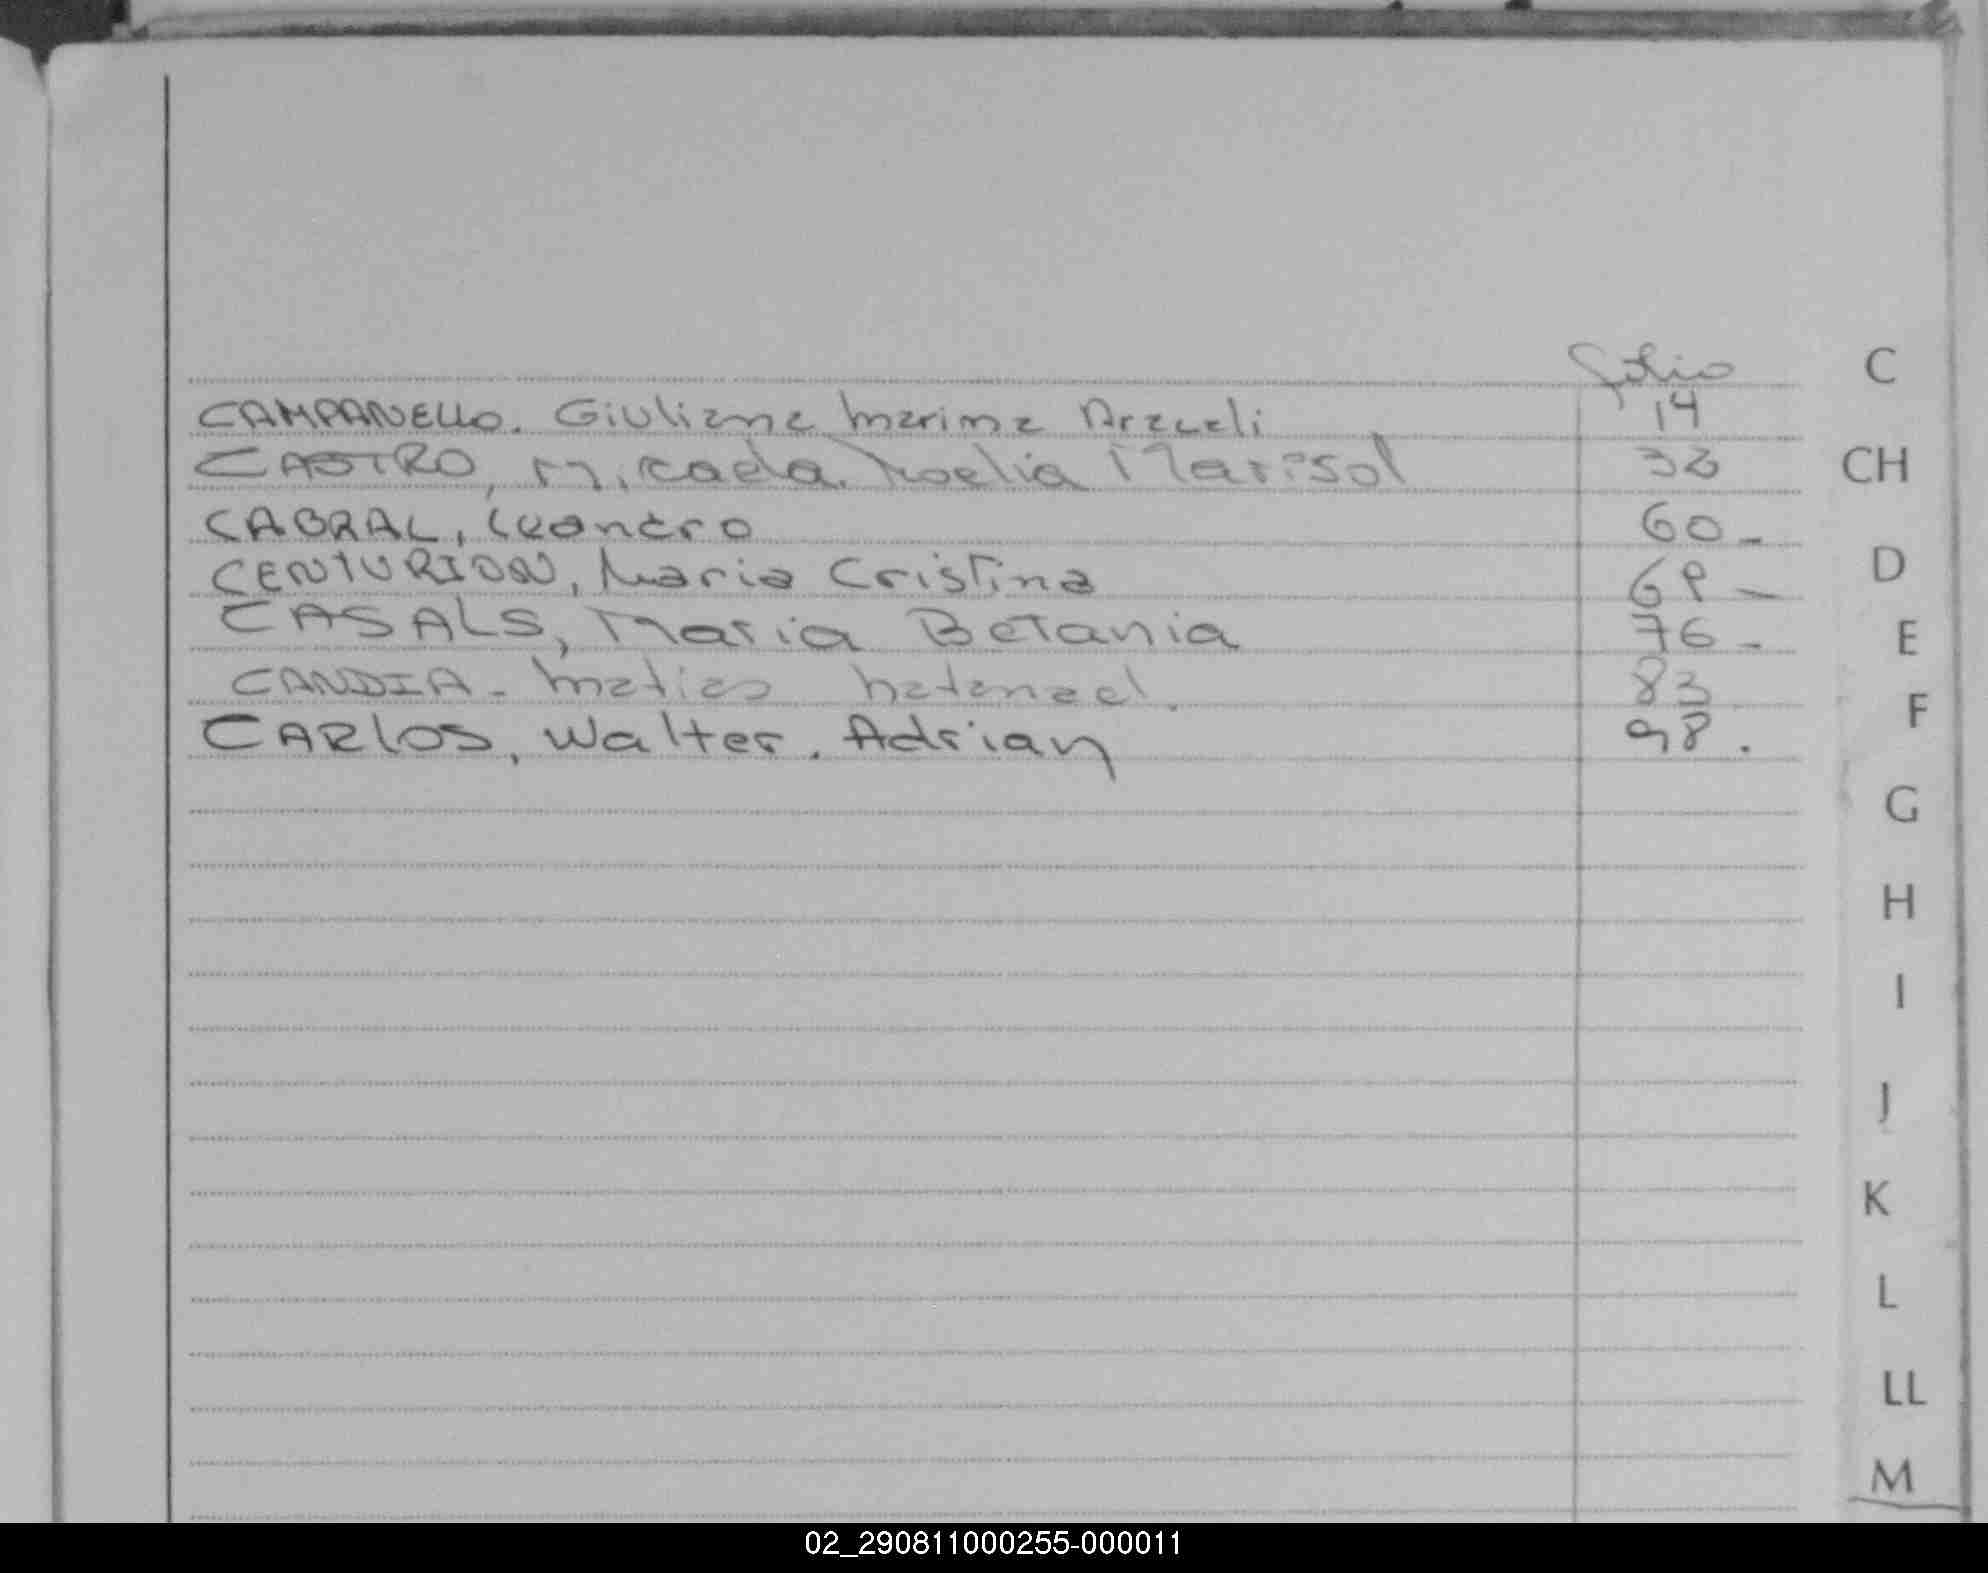 folio
CAMPANELLO. Giuliana Marina Araceli 14
CASTRO, Micaela Noelia Marisol 32
CABRAL, Leandro 60-
CENTURION, Maria Cristina 69-
CASALS, Maria Betania 76-
CANDIA- Matias Natanael. 83
CARlOS, Walter. Adrian 98.
C
CH
D
E
F
G
H
I
J
K
L
LL
M
02_290811000255-000011